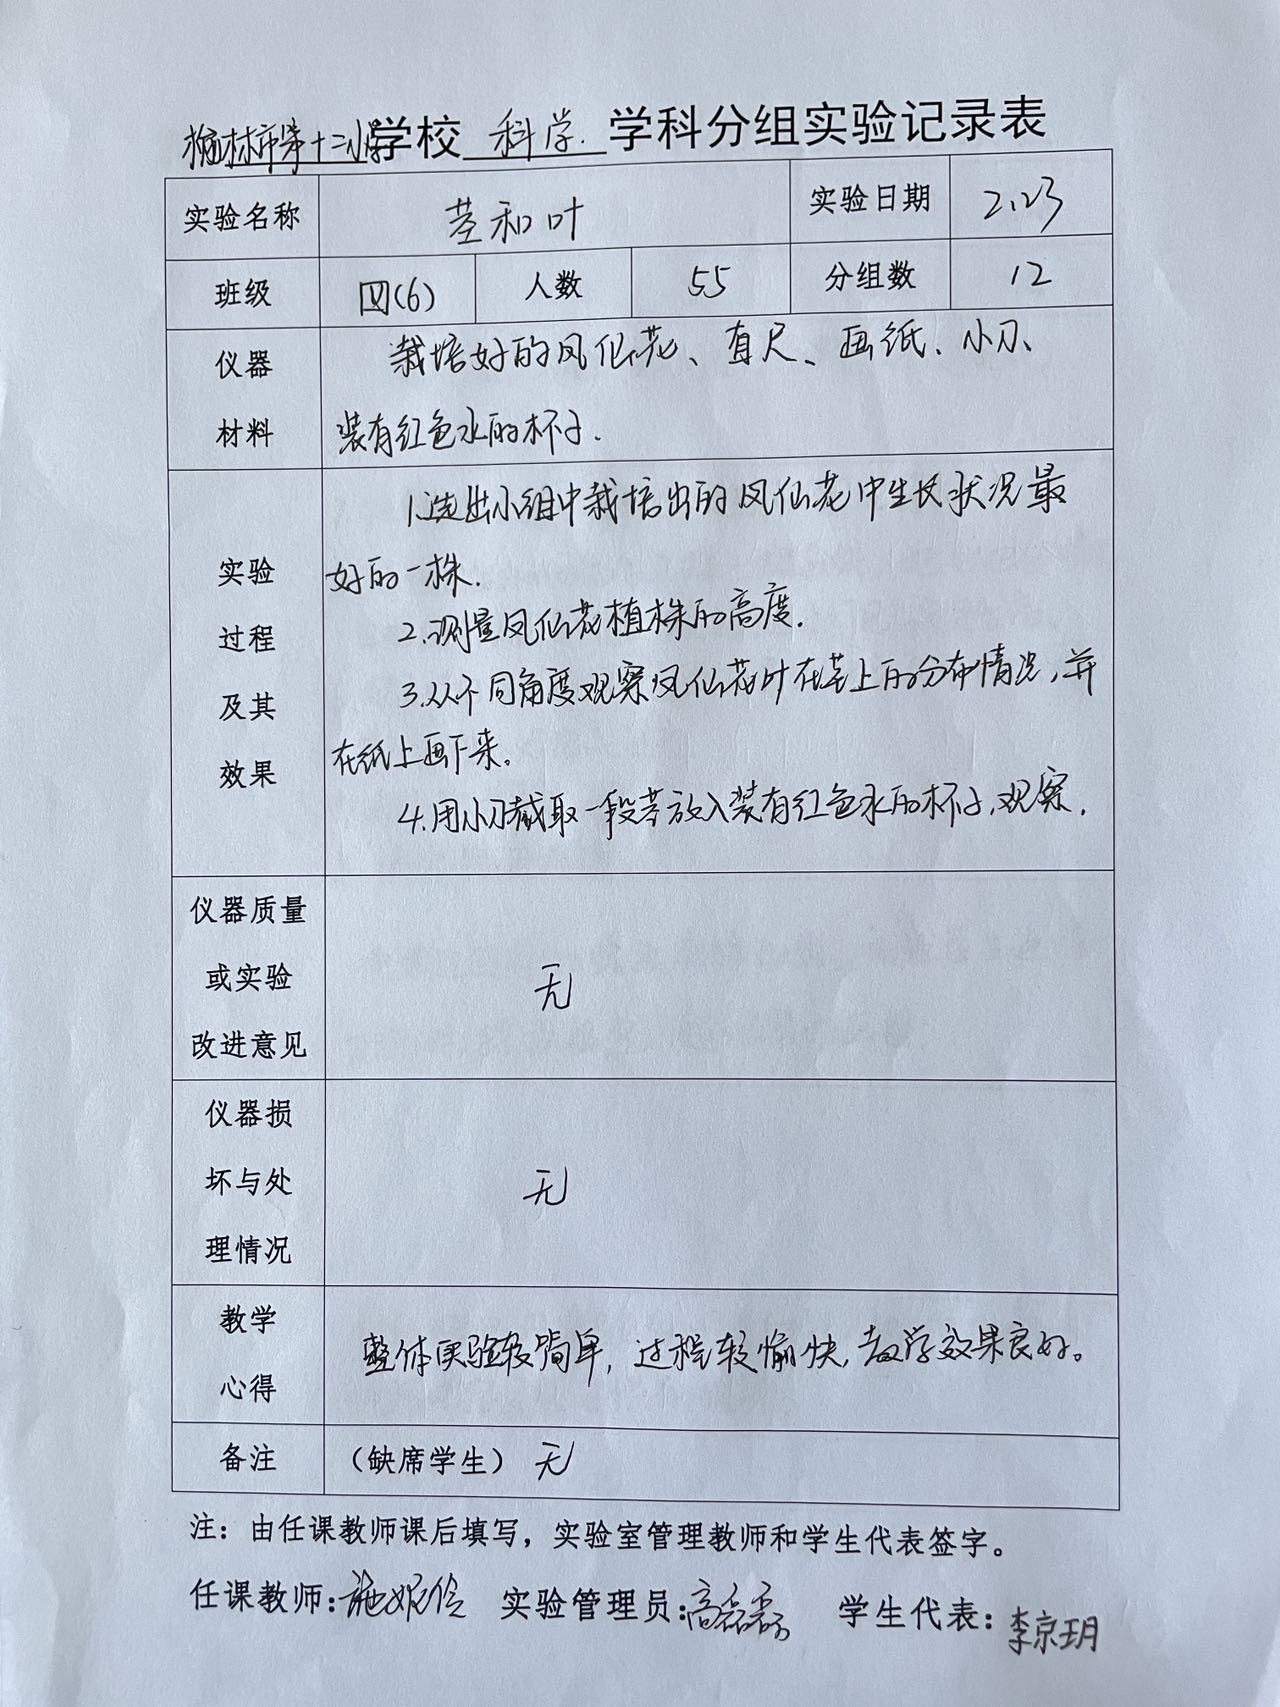 榆林市第十二小学学校 科学 学科分组实验记录表
实验名称 茎和叶 实验日期 2.23
班级 四(6) 人数 55 分组数 12
仪器 栽培好的凤仙花、直尺、画纸、小刀、
材料 装有红色水的杯子.
1.选出小组中栽培出的凤仙花中生长状况最
实验 好的一株.
过程 2.测量凤仙花植株的高度.
及其 3.从不同角度观察凤仙花叶在茎上的分布情况,并
效果 在纸上画下来。
4.用小刀截取一段茎放入装有红色水的杯子,观察.
仪器质量
或实验 无
改进意见
仪器损
坏与处 无
理情况
教学
心得 整体实验较简单,过程较愉快,教学效果良好。
备注 （缺席学生）无
注：由任课教师课后填写，实验室管理教师和学生代表签字。
任课教师:施妮伶 实验管理员:高磊磊 学生代表：李京玥